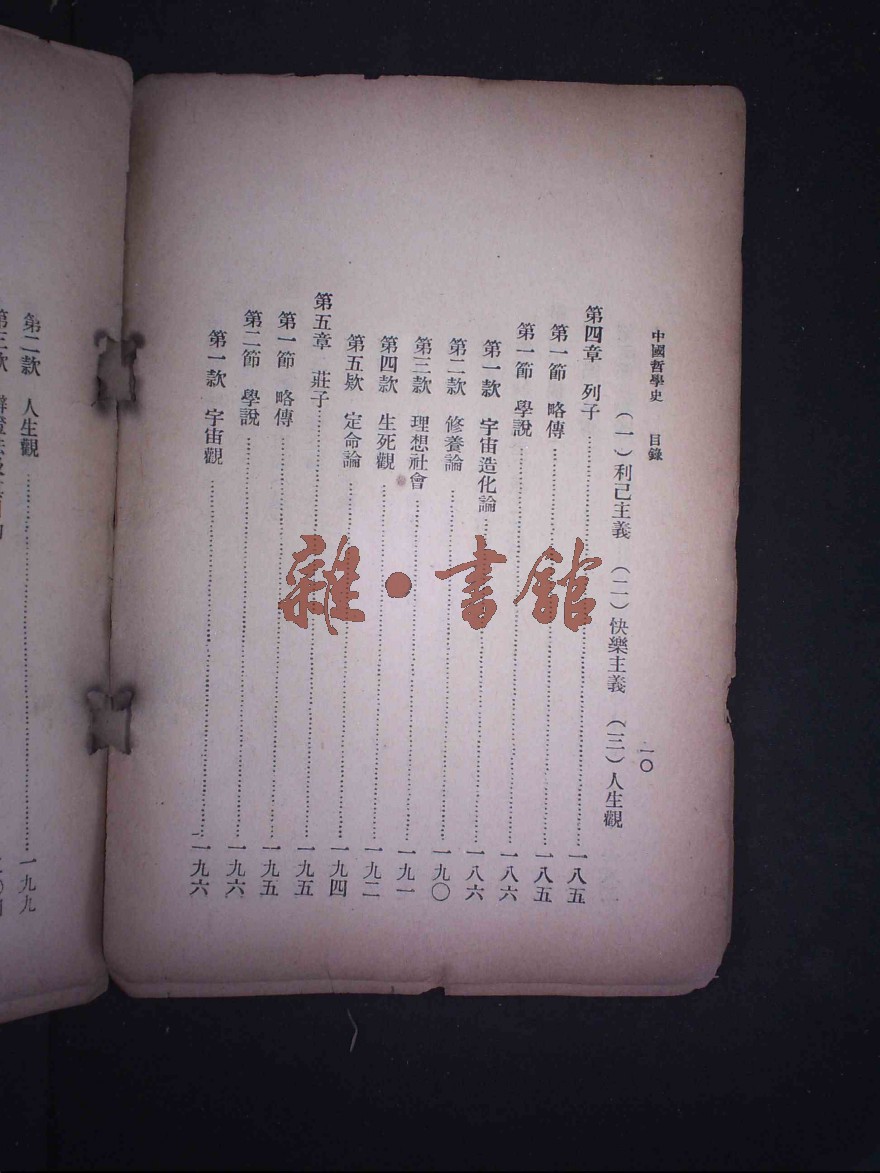 中國哲學史 目錄 一〇
（一）利己主義 （二）快樂主義 （三）人生觀
第四章 列子……一八五
第一節 略傳……一八五
第一節 學說……一八六
第一款 宇宙造化論……一八六
第二款 修養論……一九〇
第三款 理想社會……一九一
第四款 生死觀……一九二
第五欵 定命論……一九四
第五章 莊子……一九五
第一節 略傳……一九五
第二節 學說……一九六
第一款 宇宙觀……一九六
第二款 人生觀……一九九
雜·書館